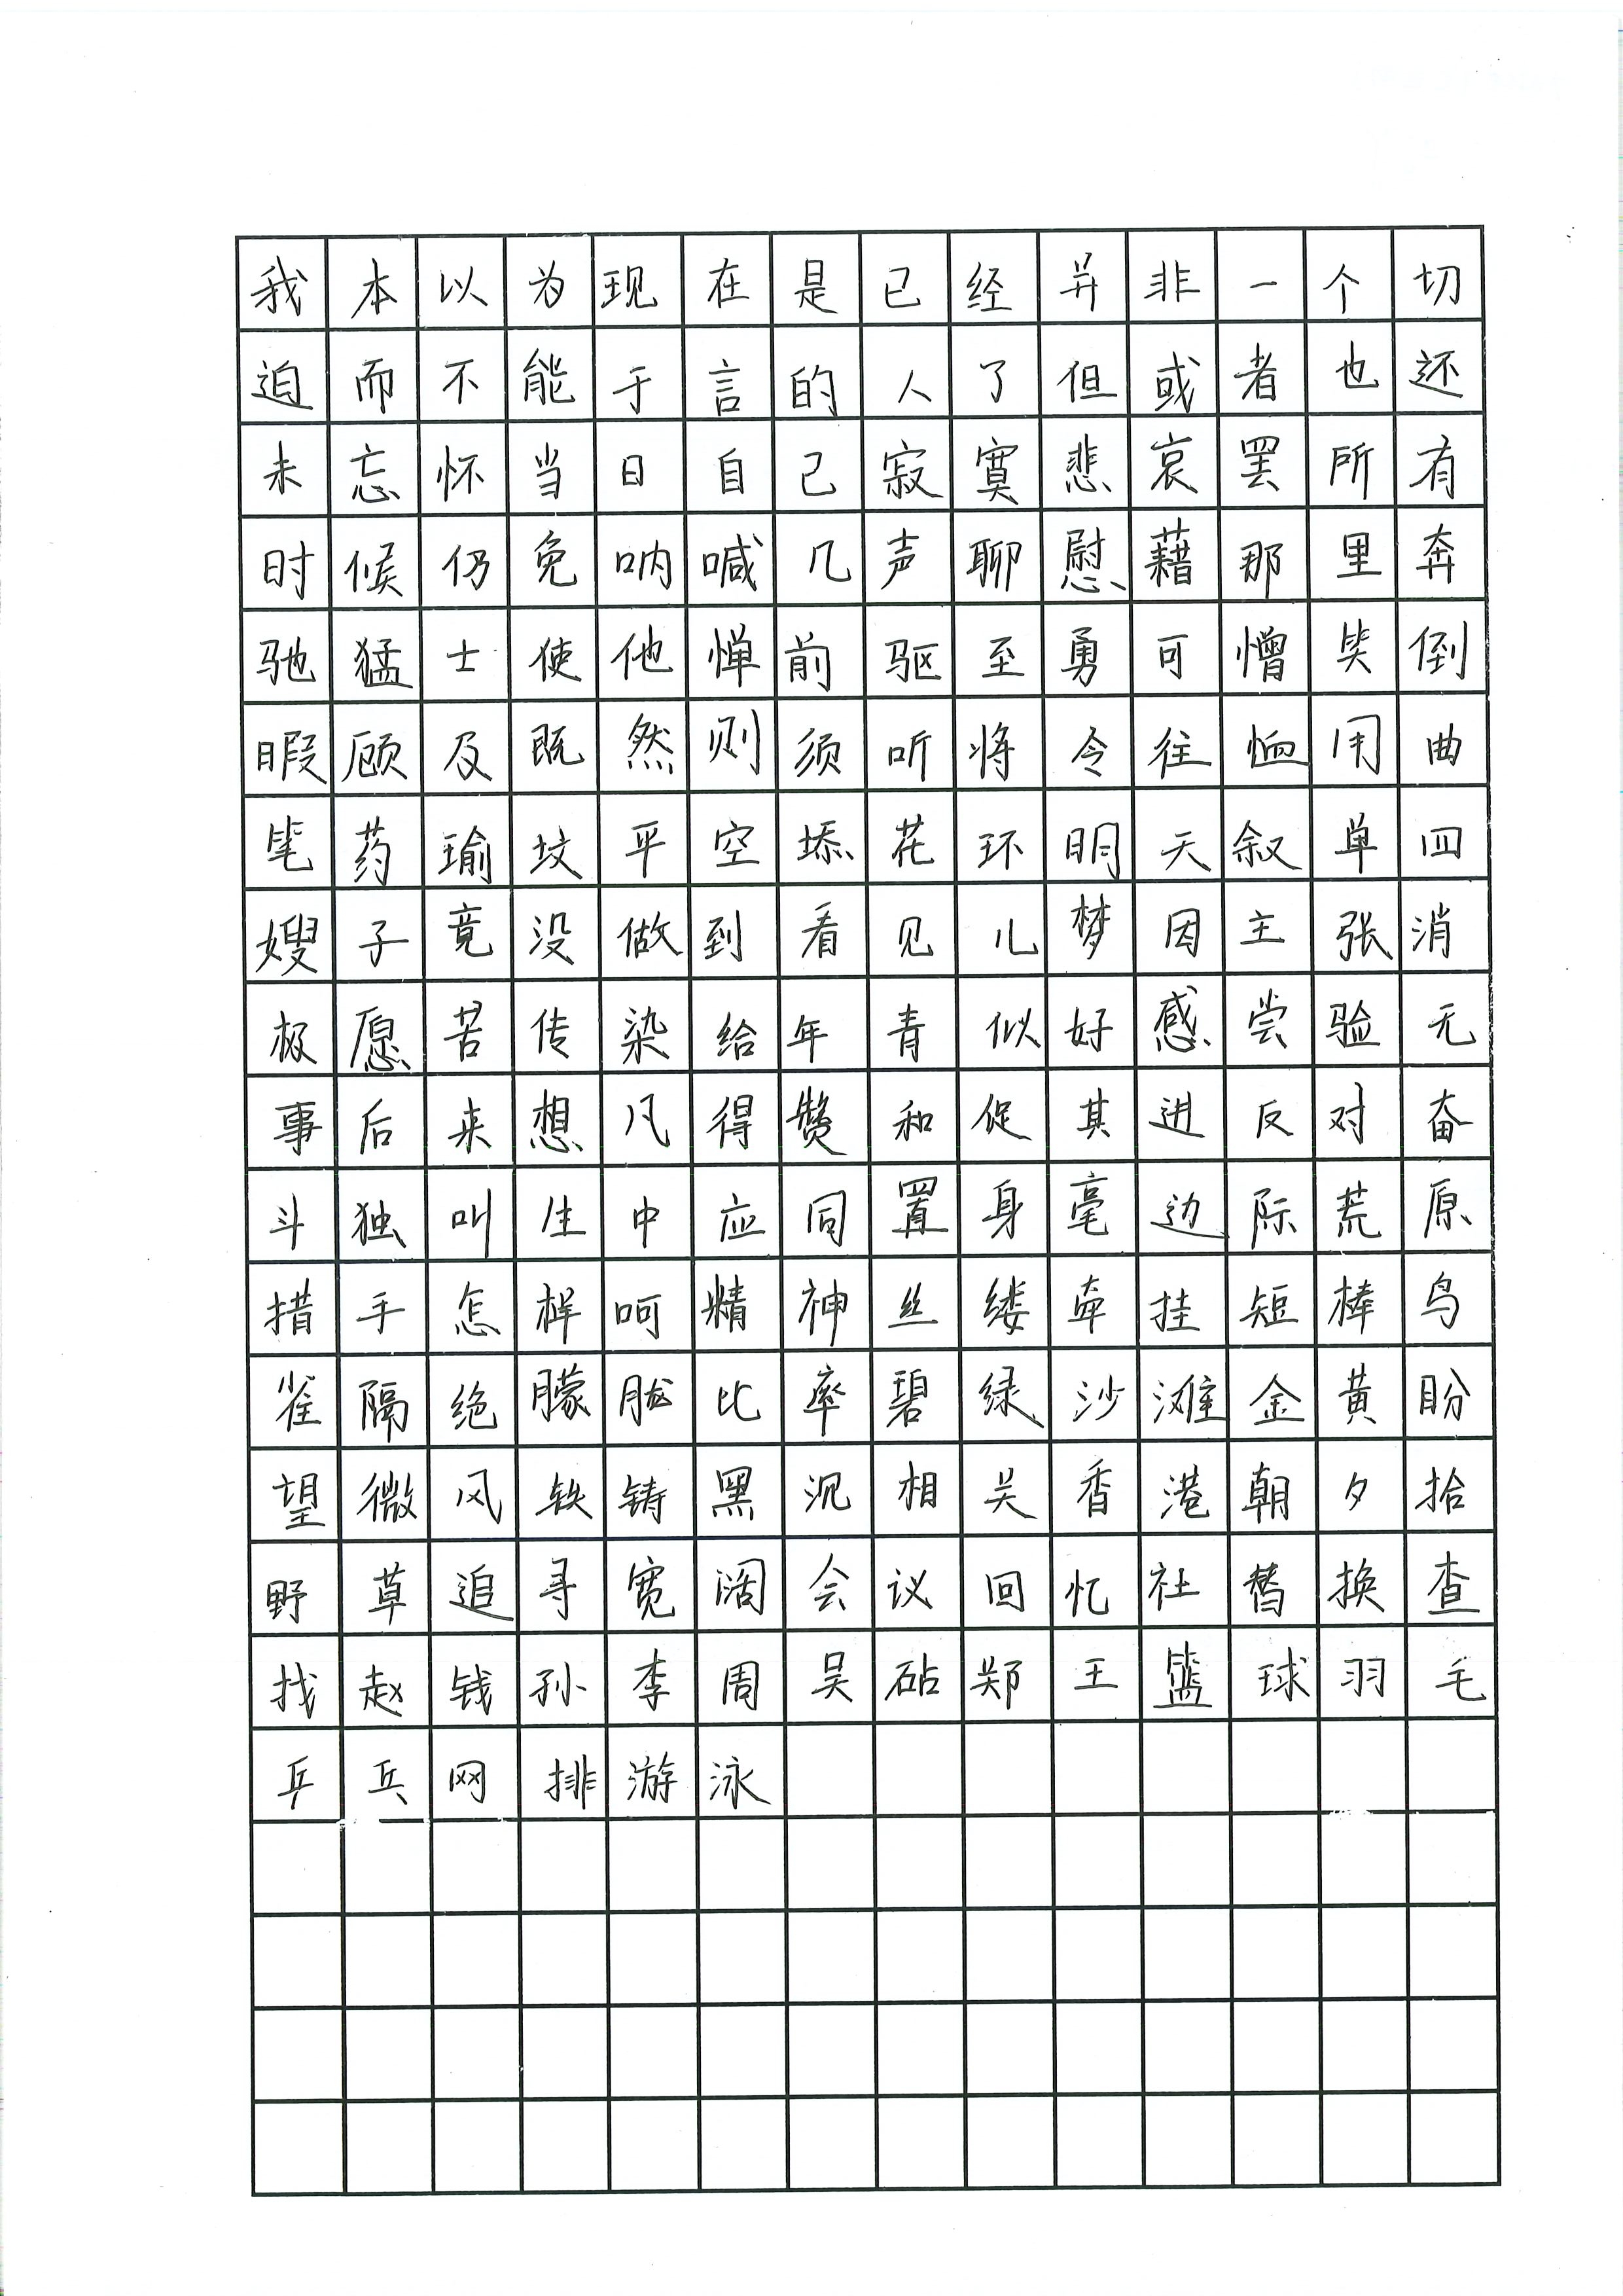 我本以为现在是已经并非一个切
迫而不能于言的人了但或者也还
未忘怀当日自己寂寞悲哀罢所有
时候仍免呐喊几声聊慰藉那里奔
驰猛士使他惮前驱至勇可憎笑倒
暇顾及既然则须听将令往恤用曲
笔药瑜坟平空添花环明天叙单四
嫂子竟没做到看见儿梦因主张消
极愿苦传染给年青似好感尝验无
事后来想凡得赞和促其进反对奋
斗独叫生中应同置身毫边际荒原
措手怎样呵精神丝缕牵挂短棒鸟
雀隔绝朦胧比率碧绿沙滩金黄盼
望微风铁铸黑沉相关香港朝夕拾
野草追寻宽阔会议回忆社替换查
找赵钱孙李周吴砧郑王篮球羽毛
乒乓网排游泳